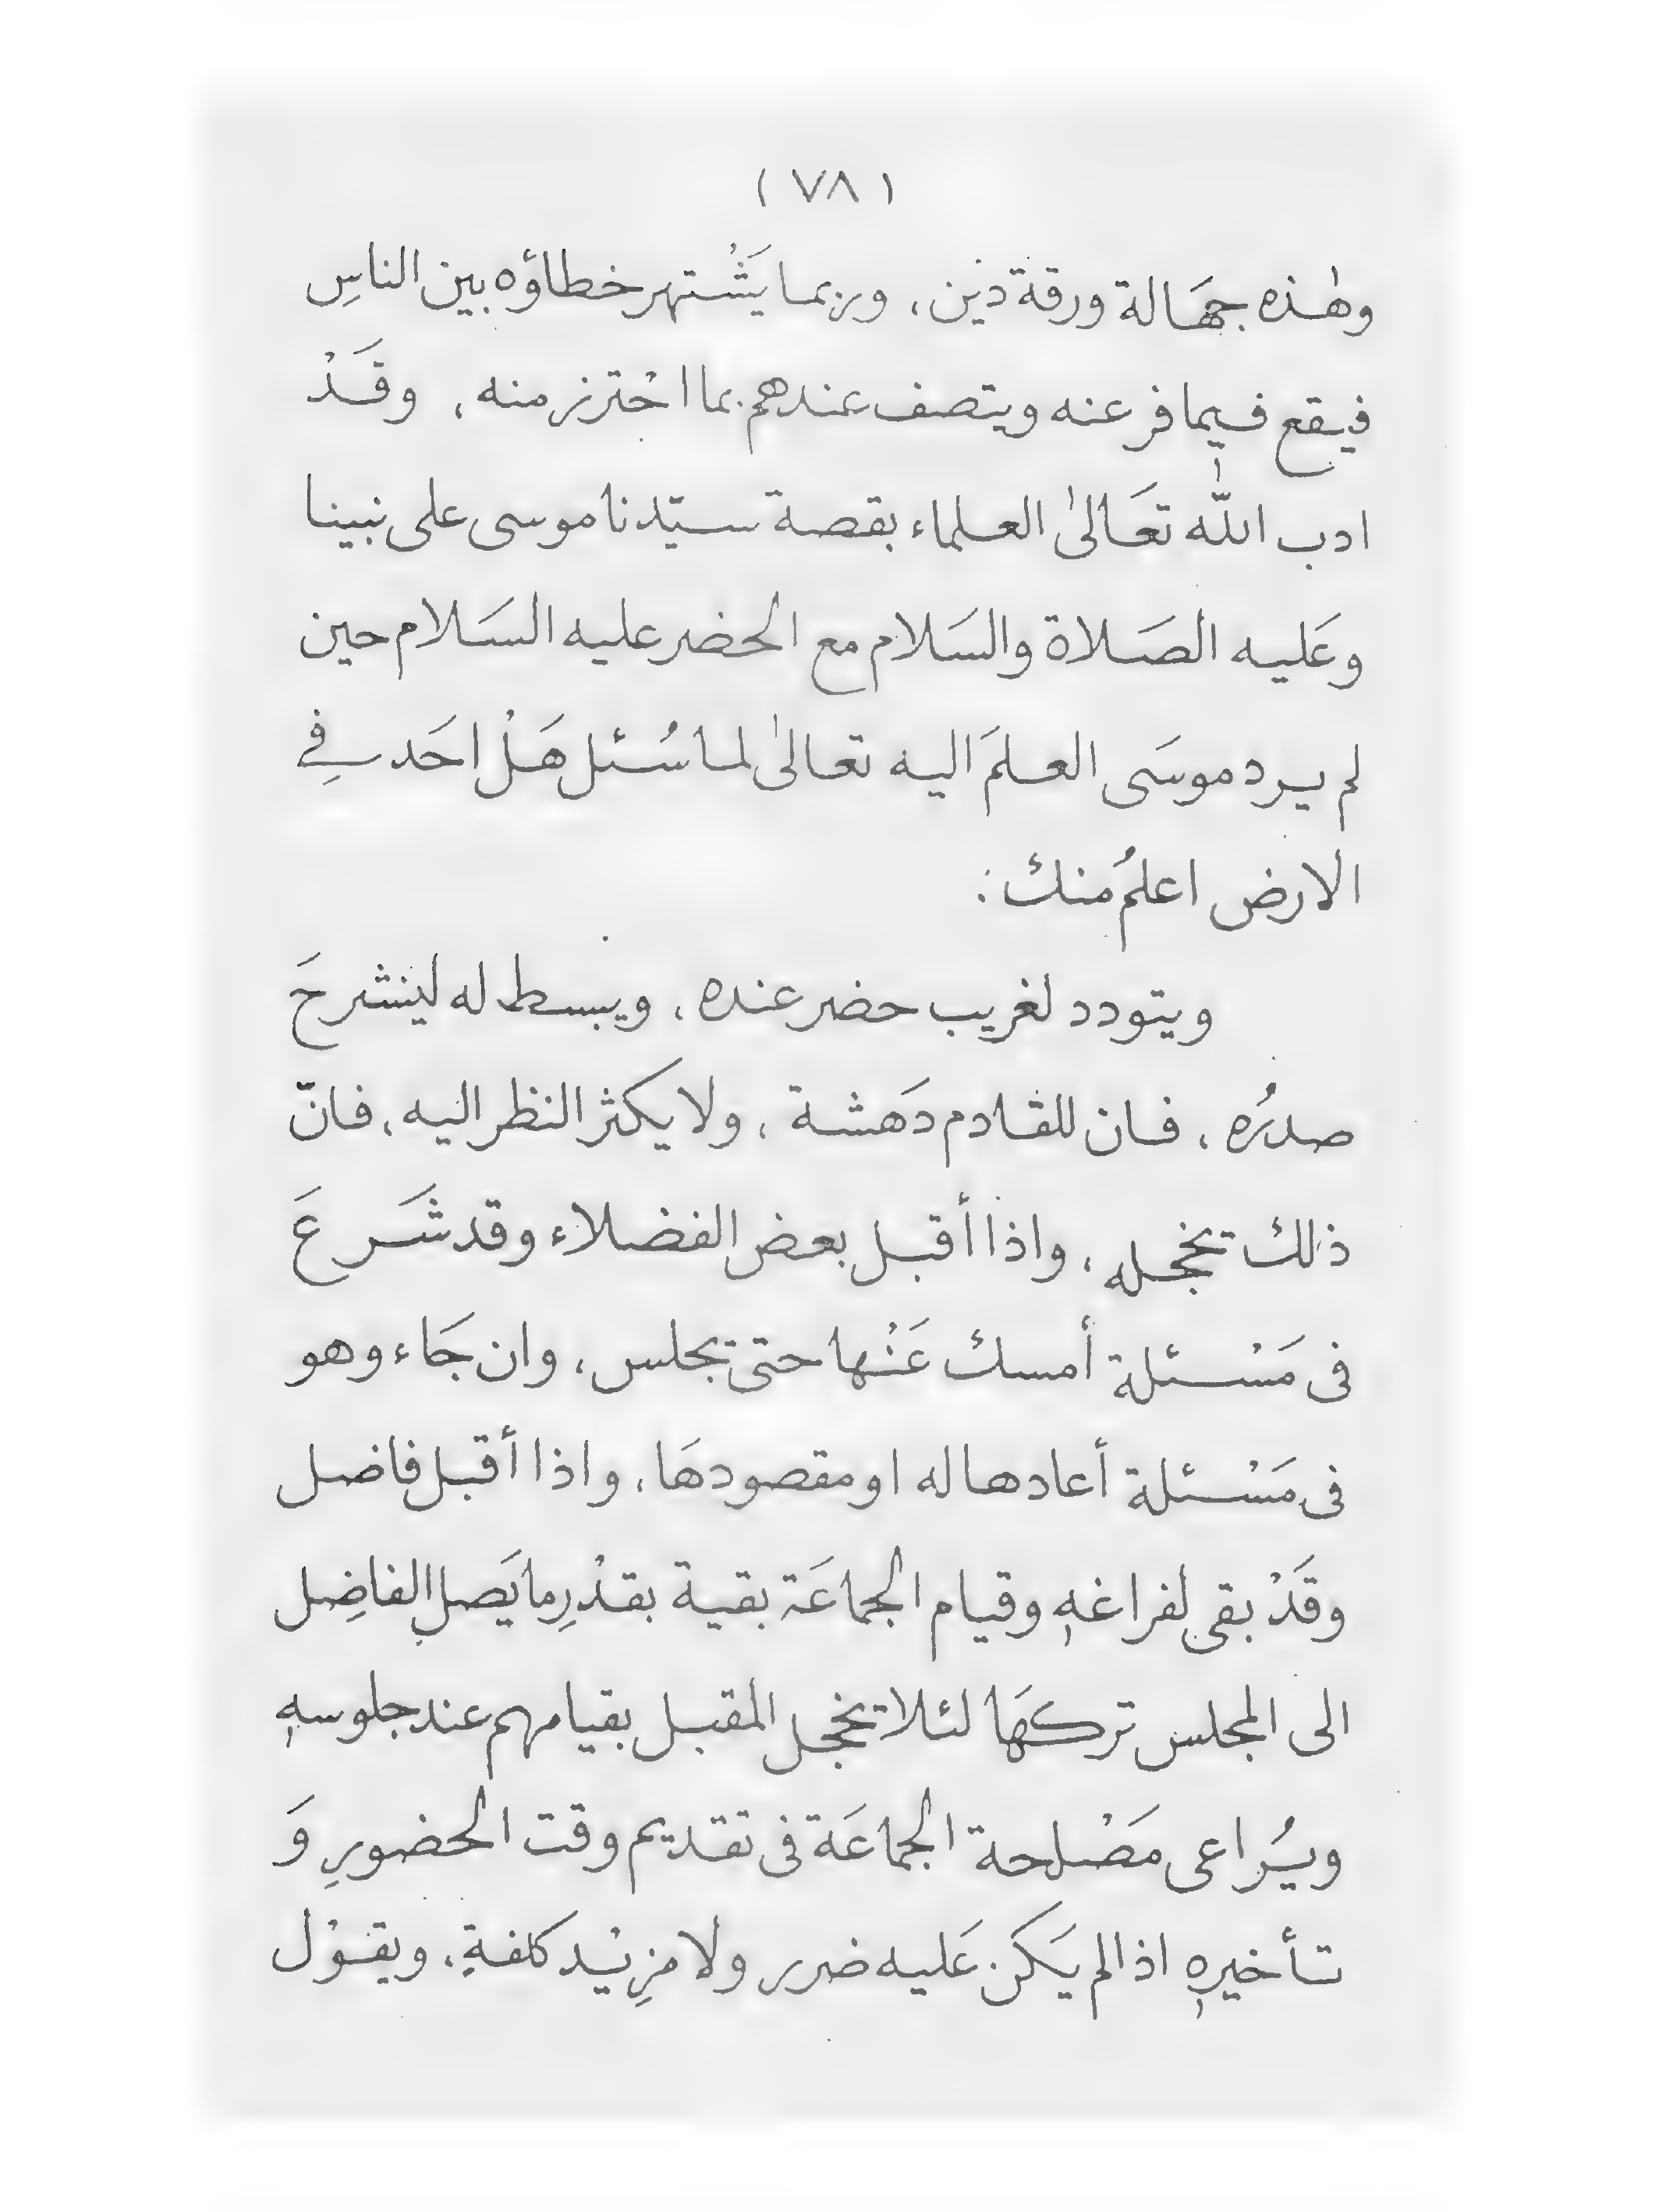 ( ٧٨ )
وهٰذه جهَالة ورقة دين، وربما يشْتهر خطاؤه بين الناسِ
فيقع فيما فر عنه ويتصف عندهم بما احْترز منه، وقَدْ
ادب اللّٰه تعَالىٰ العلماء بقصة سيّدنا موسى على نبينا
وعَليه الصَلاة والسَلام مع الخضر عليه السَلام حين
لم يرد موسَى العلمَ اليه تعالىٰ لما سُئل هَلْ احَد في
الارض اعلمُ منك :
ويتودد لغريب حضر عنده، ويبسط له لينشرحَ
صدرُه، فان للقادم دَهشة، ولا يكثر النظر اليه، فانّ
ذلك يخجله، واذا أقبل بعض الفضلاء وقد شَرعَ
فى مَسْئلة أمسك عَنْها حتى يجلس، وان جَاء وهو
فى مَسْئلة أعادها له او مقصودهَا، واذا أقبل فاضل
وقَدْ بقى لفراغهٖ وقيام الجماعَة بقية بقدْرِ ما يَصل الفاضِل
الى المجلس تركهَا لئلا يخجل المقبل بقيامهم عند جلوسهٖ
ويُراعى مَصْلحة الجماعَة فى تقديم وقت الحضورِ وَ
تأخيرهٖ اذا لم يَكن عَليه ضرر ولا مزِيْد كلفةٍ، ويقوْل